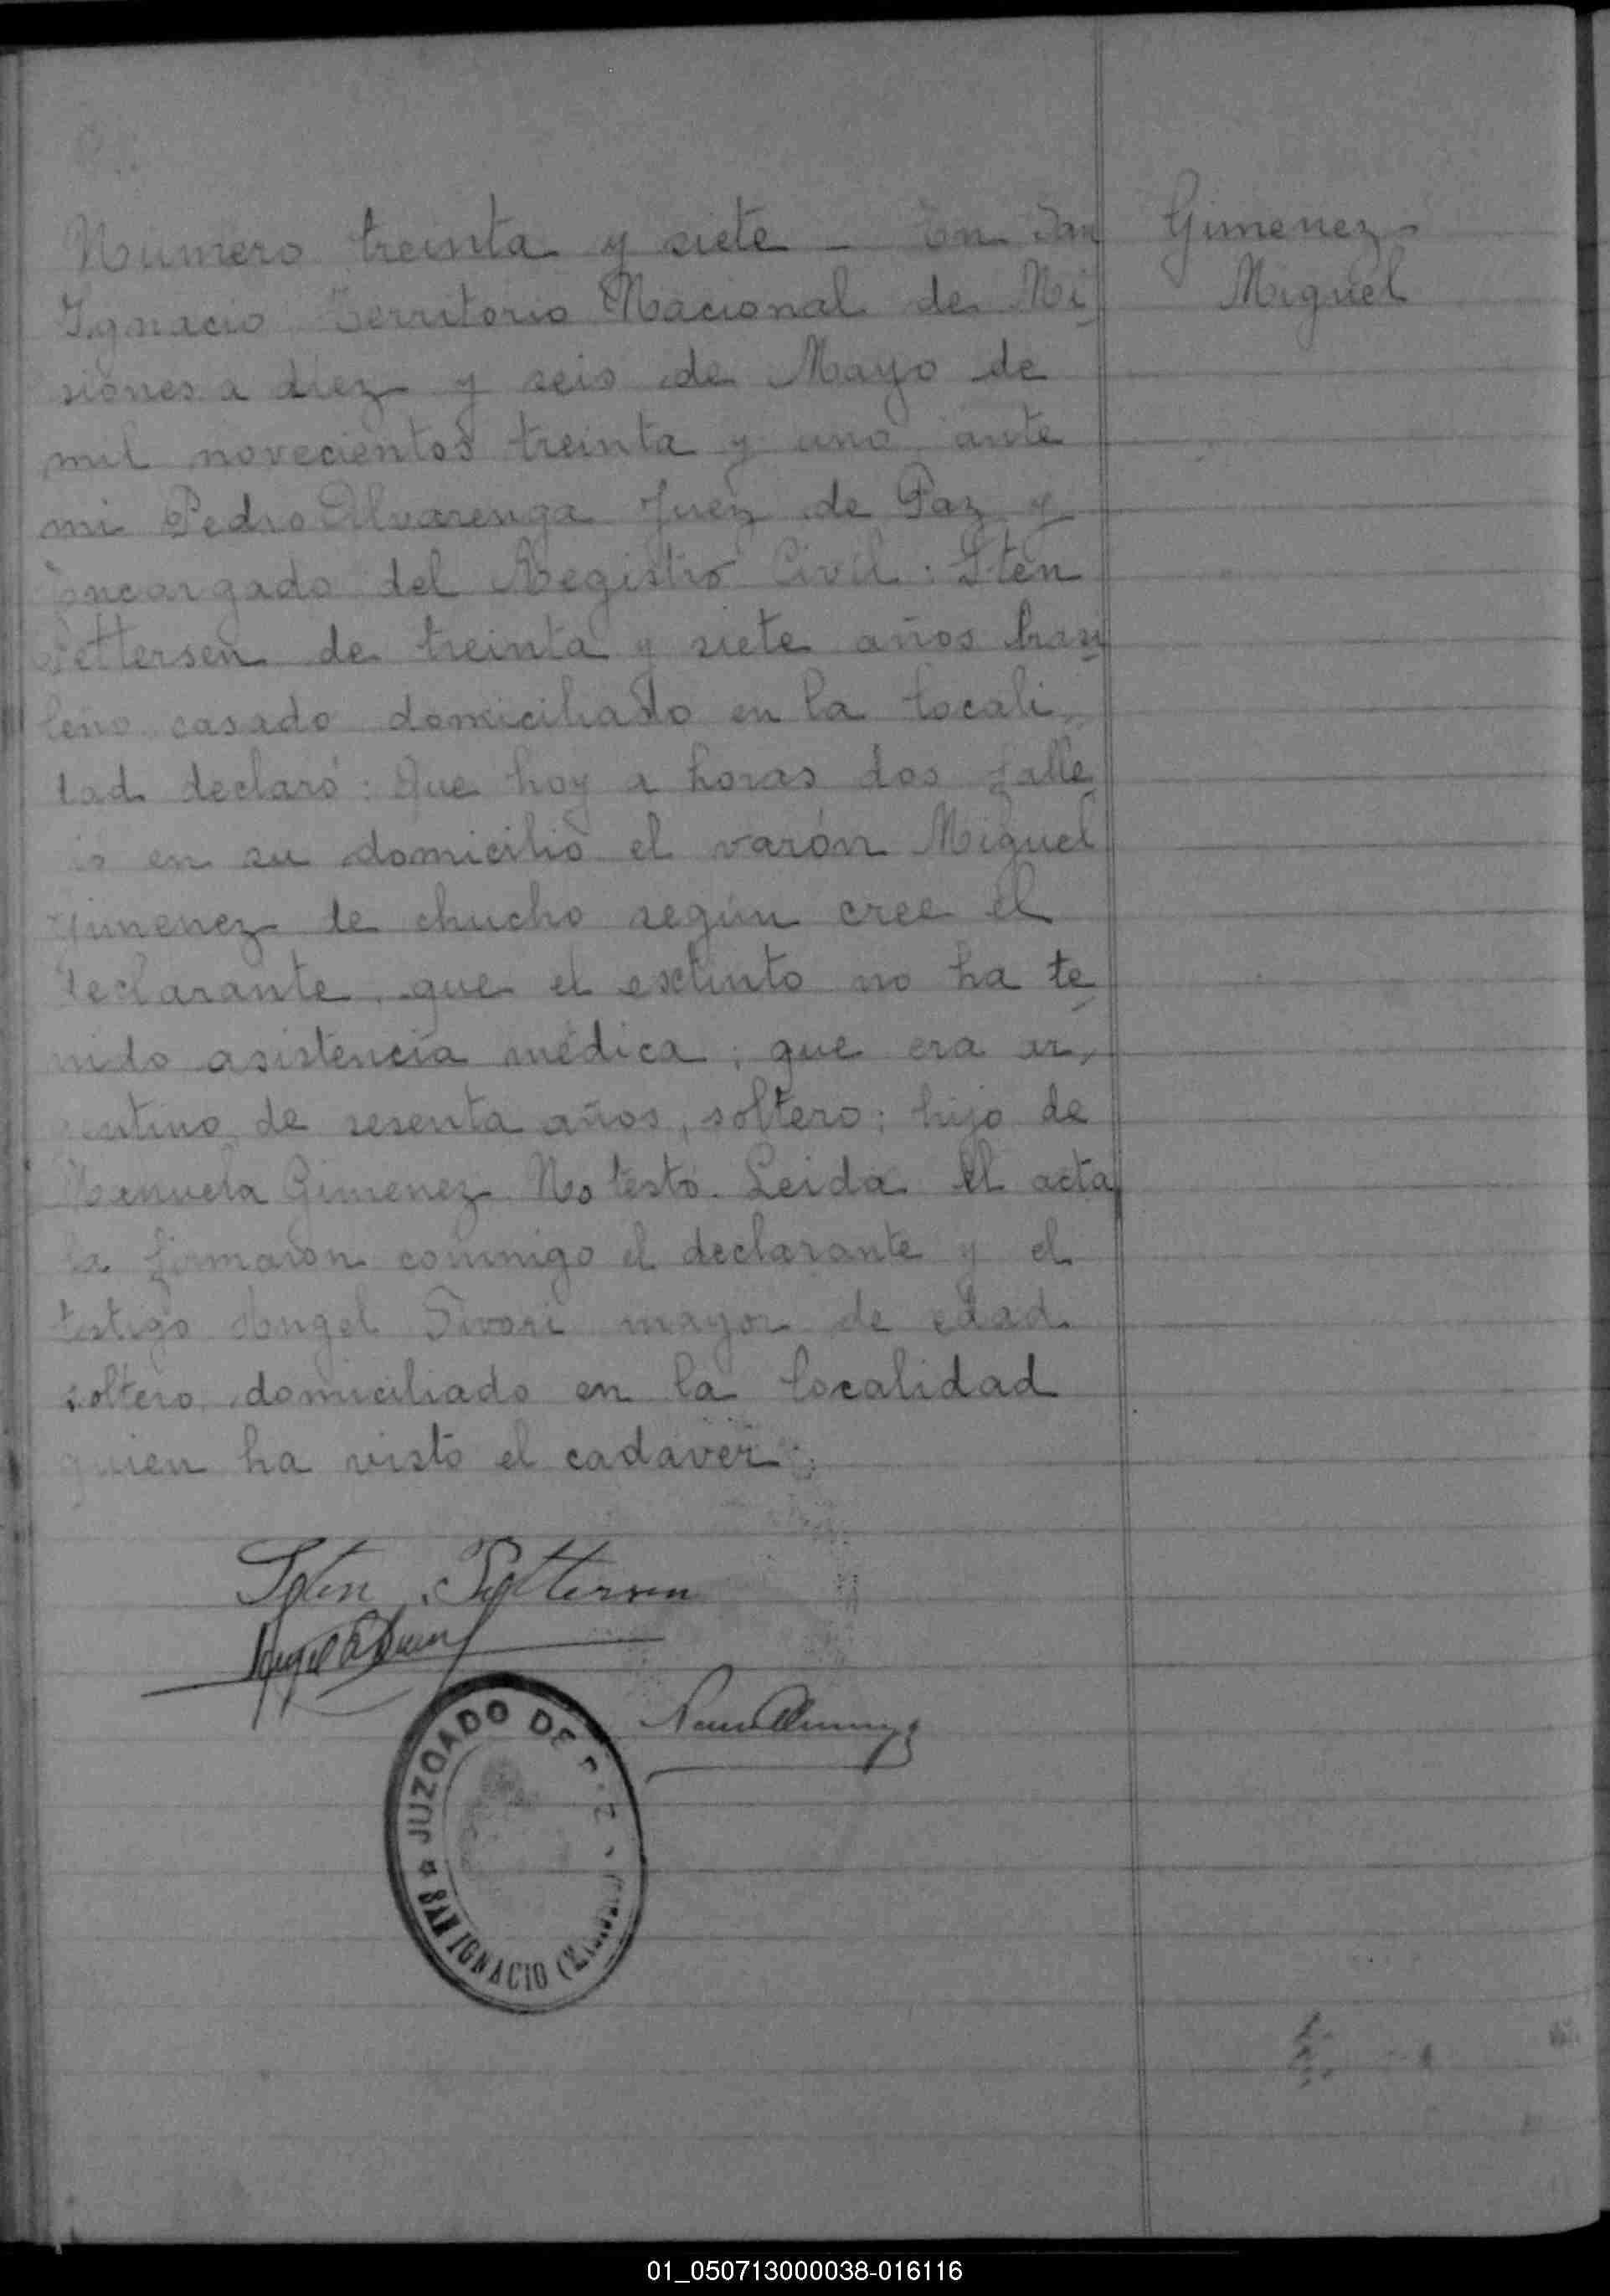 Número treinta y siete - En San
Ignacio Territorio Nacional de Mi
siones a diez y seis de Mayo de
mil novecientos treinta y uno ante
mi Pedro Alvarenga Juez de Paz y
encargado del Registro Civil: Sten
Pettersen de treinta y siete años bra
leño casado domiciliado en la locali
dad declaró: Que hoy a horas dos falle
ió en su domicilio el varón Miguel
Gimenez de chucho según cree el
declarante, que el extinto no ha te
nido asistencia médica; que era ar
gentino de sesenta años, soltero; hijo de
Manuela Gimenez No testó. Leida el acta
la firmaron conmigo el declarante y el
testigo Angel mayor de edad
soltero domiciliado en la localidad
quien ha visto el cadaver
Gimenez
Miguel
Sten Pettersen
JUZGADO DE
SAN IGNACIO
01_050713000038-016116